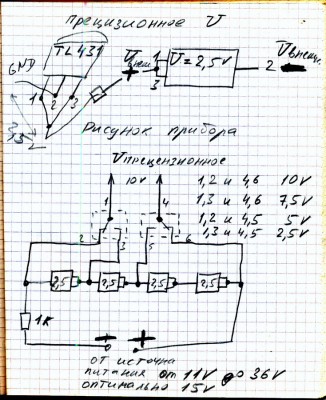 прецизионное U
TL431
GND
1 2 3
+ 1 3 U=2,5V 2
Рисунок прибора
Uпрецезионное
10V
1 4
1,2 и 4,6 10V
1,3 и 4,6 7,5V
1,2 и 4,5 5V
1,3 и 4,5 2,5V
2 3 5 6
2,5 2,5 2,5 2,5
1К
+ +
от источка
питания от 11V до 36V
оптимально 15V